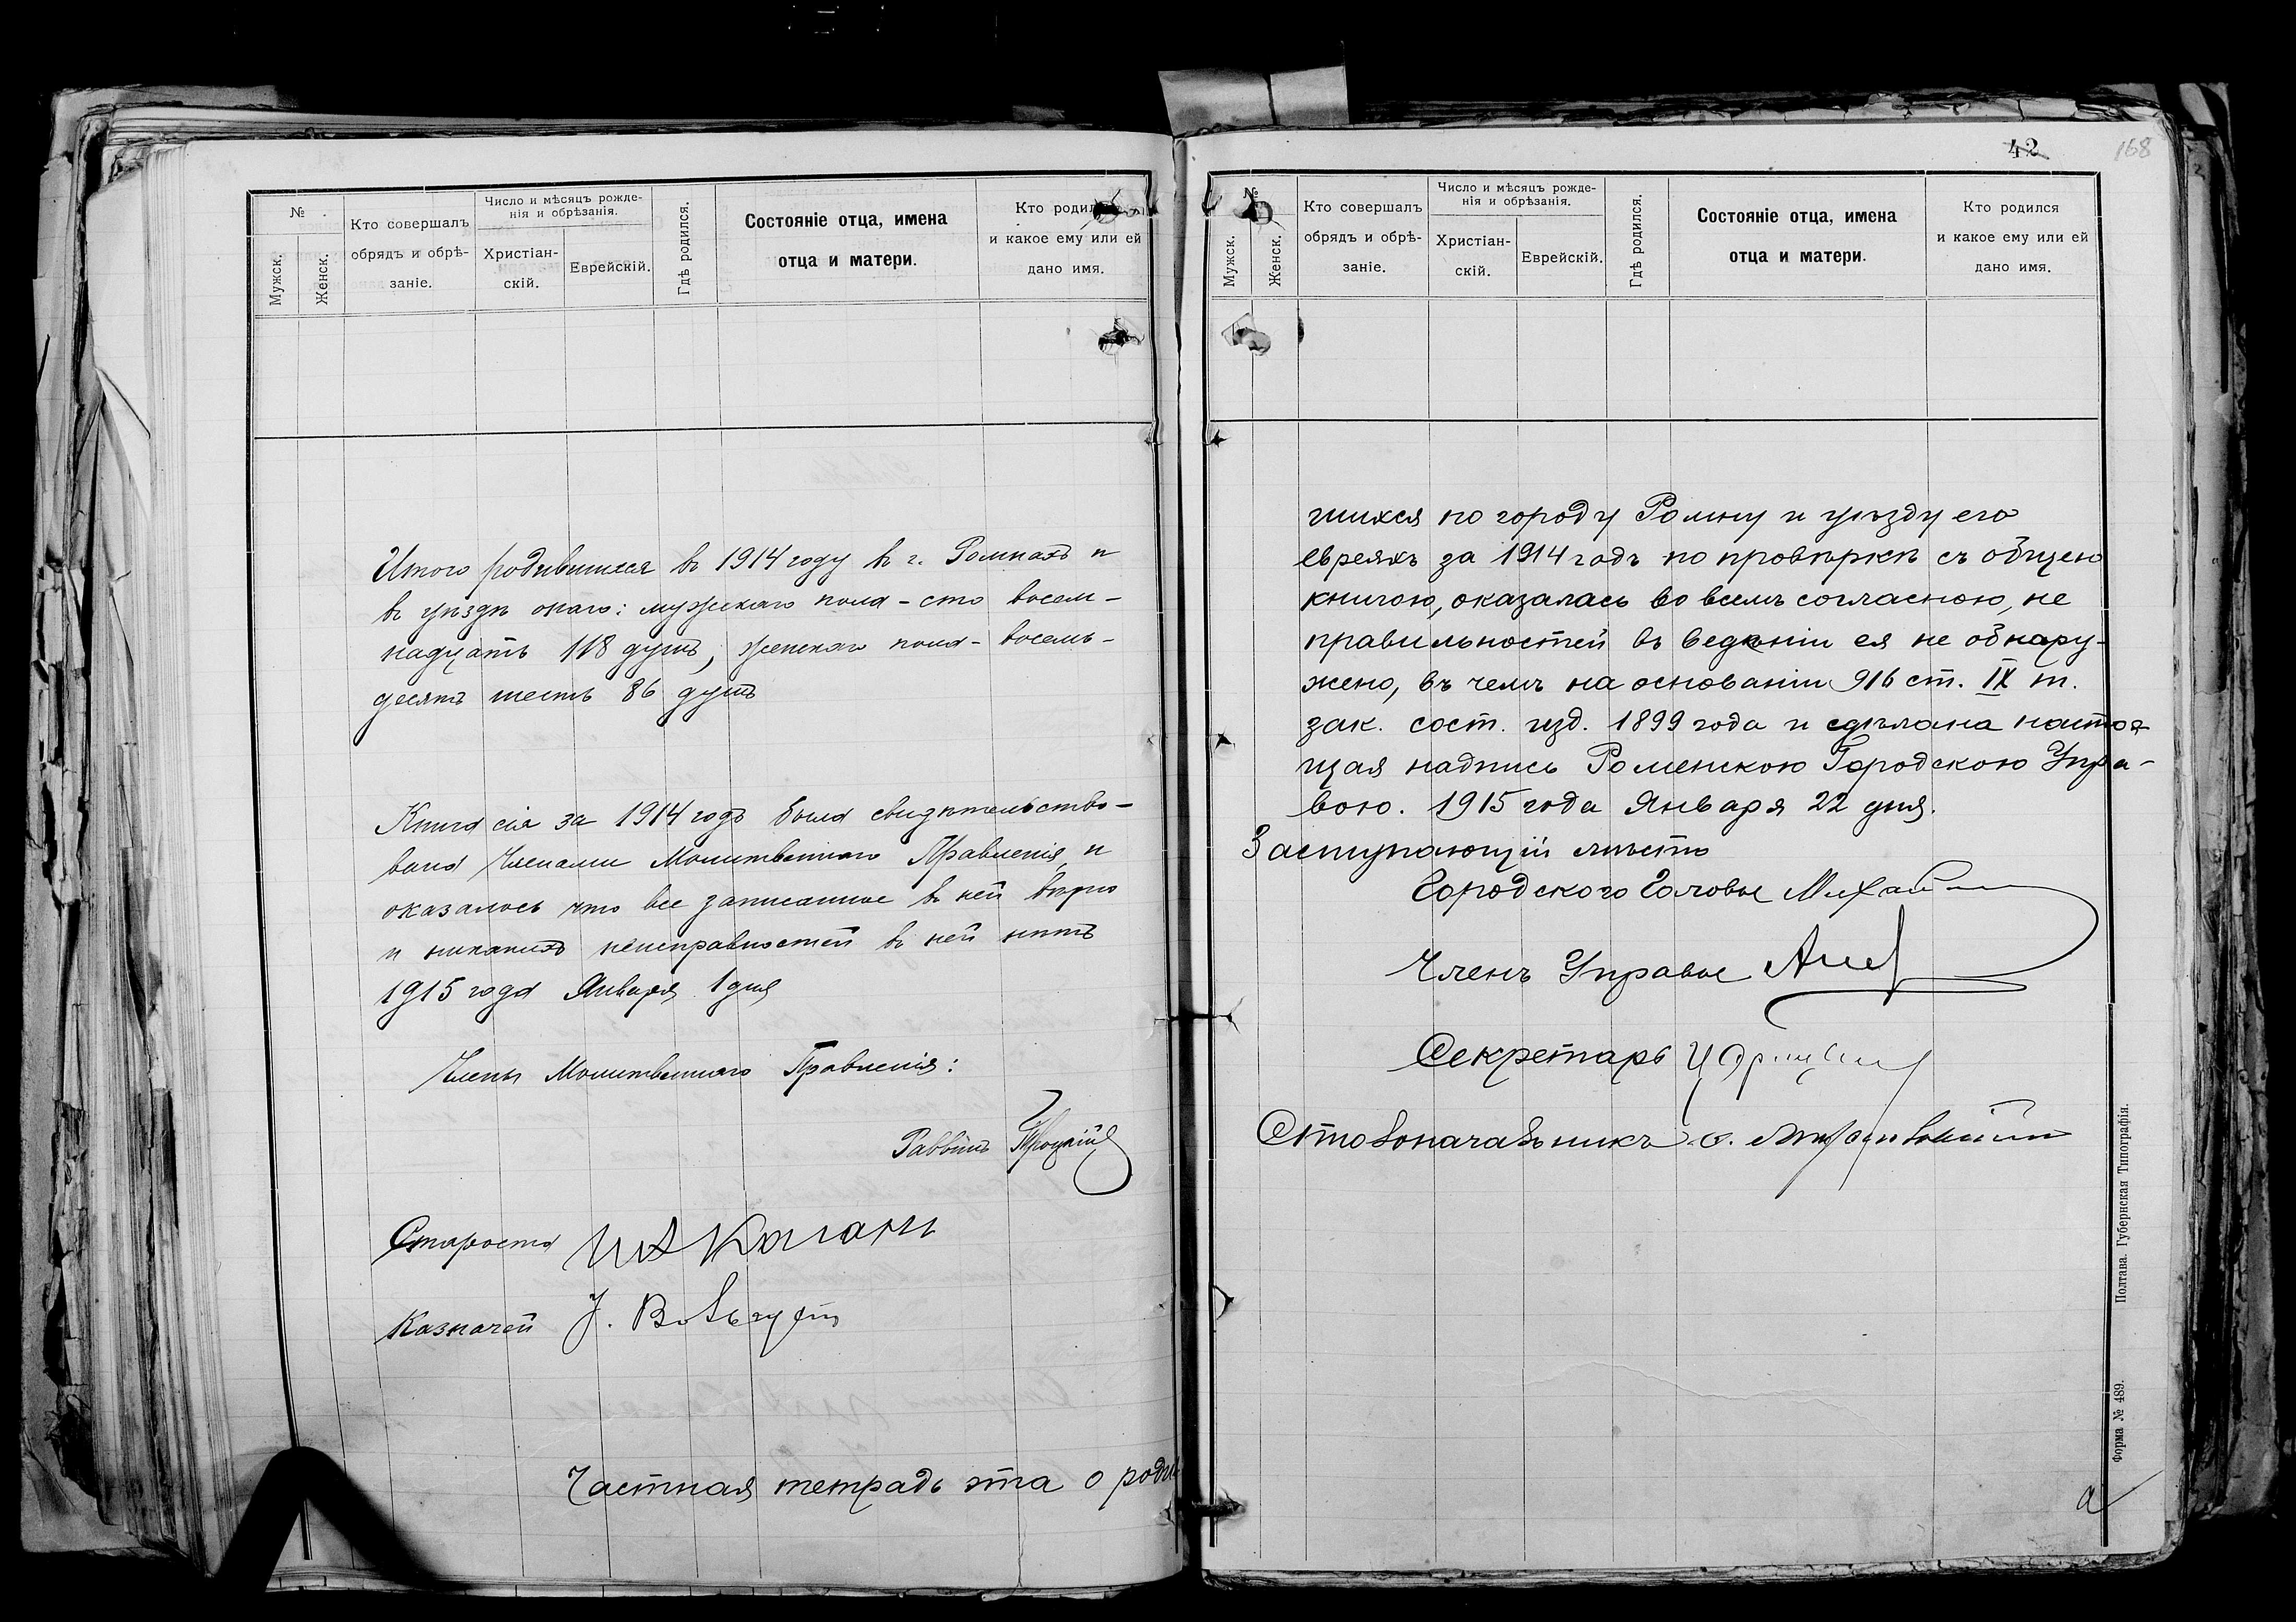 №
Мужск.
Женск.
Кто совершалъ
обрядъ и обрѣ-
заніе.
Число и мѣсяцъ рожде-
нія и обрѣзанія.
Христіан-
скій.
Еврейскій.
Гдѣ родился.
Состояніе отца, имена
отца и матери.
Кто родился
и какое ему или ей
дано имя.
Итого родившихся въ 1914 году въ г. Ромнахъ и
въ уѣздѣ онаго: мужскаго пола - сто восем-
надцать 118 душъ, женскаго пола - восемь-
десятъ шесть 86 душъ
Книга сія за 1914 годъ была свидѣтельство-
вана Членами Молитвеннаго Правленія и
оказалось что все записанное въ ней вѣрно
и никакихъ неисправностей въ ней нѣтъ
1915 года Января 1 дня
Члены Молитвеннаго Правленія:
Раввинъ
Староста Каганъ
Казначей
Частная тетрадь эта о роди-
42
168
№
Мужск.
Женск.
Кто совершалъ
обрядъ и обрѣ-
заніе.
Число и мѣсяцъ рожде-
нія и обрѣзанія.
Христіан-
скій.
Еврейскій.
Гдѣ родился.
Состояніе отца, имена
отца и матери.
Кто родился
и какое ему или ей
дано имя.
вшихся по городу Ромну и уѣзду его
евреяхъ за 1914 годъ по провѣркѣ съ общею
книгою, оказалась во всемъ согласною, не
правильностей въ веденіи ея не обнару-
жено, въ чемъ на основаніи 916 ст. IX т.
зак. сост. изд. 1899 года и сдѣлана настоя-
щая надпись Роменскою Городскою Упра-
вою. 1915 года Января 22 дня.
Заступающій мѣсто
Городского Головы
Членъ Управы
Секретарь
Столоначальникъ
Полтава. Губернская Типографія.
Форма № 489.